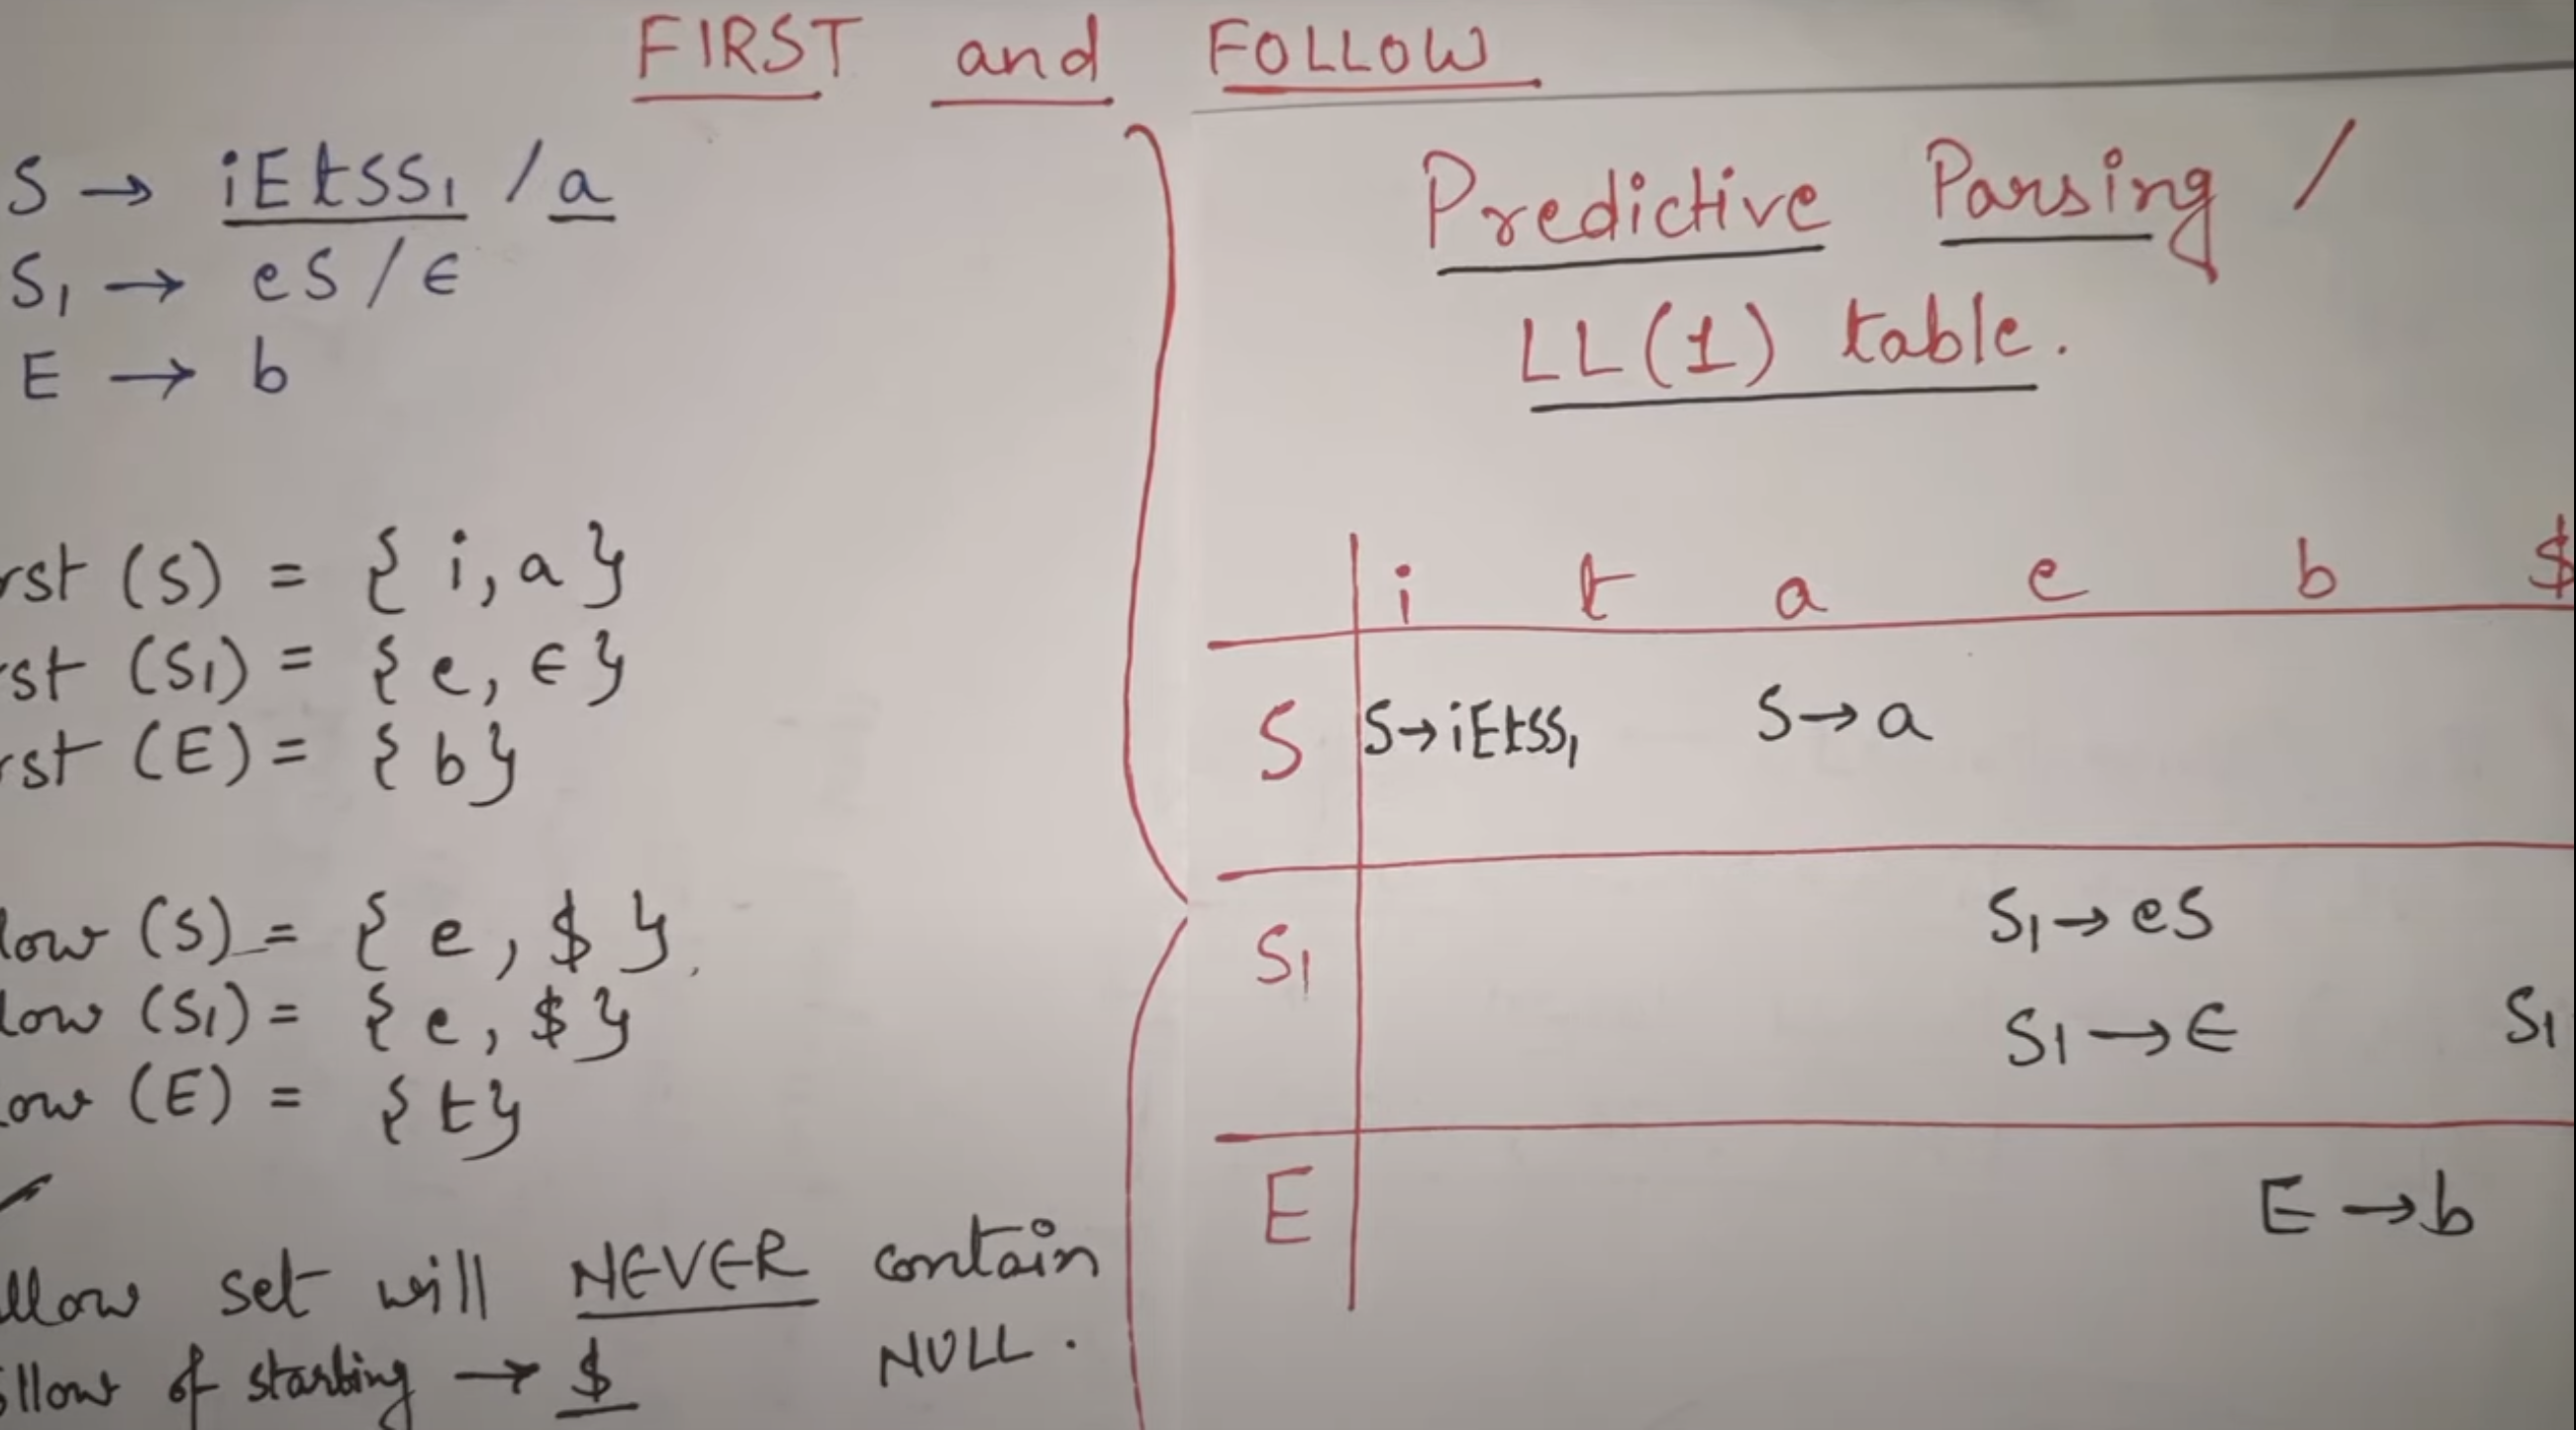 FIRST and FOLLOW
S → iEtSS₁ / a
S₁ → eS / ϵ
E → b
rst (S) = { i, a }
rst (S₁) = { e, ϵ }
rst (E) = { b }
low (S) = { e, $ }
low (S₁) = { e, $ }
low (E) = { t }
llow set will NEVER contain
NULL.
llow of starting → $
Predictive Parsing /
LL(1) table.
i t a e b $
S S→iEtSS₁ S→a
S₁→eS
S₁
S₁→ϵ S₁
E E→b